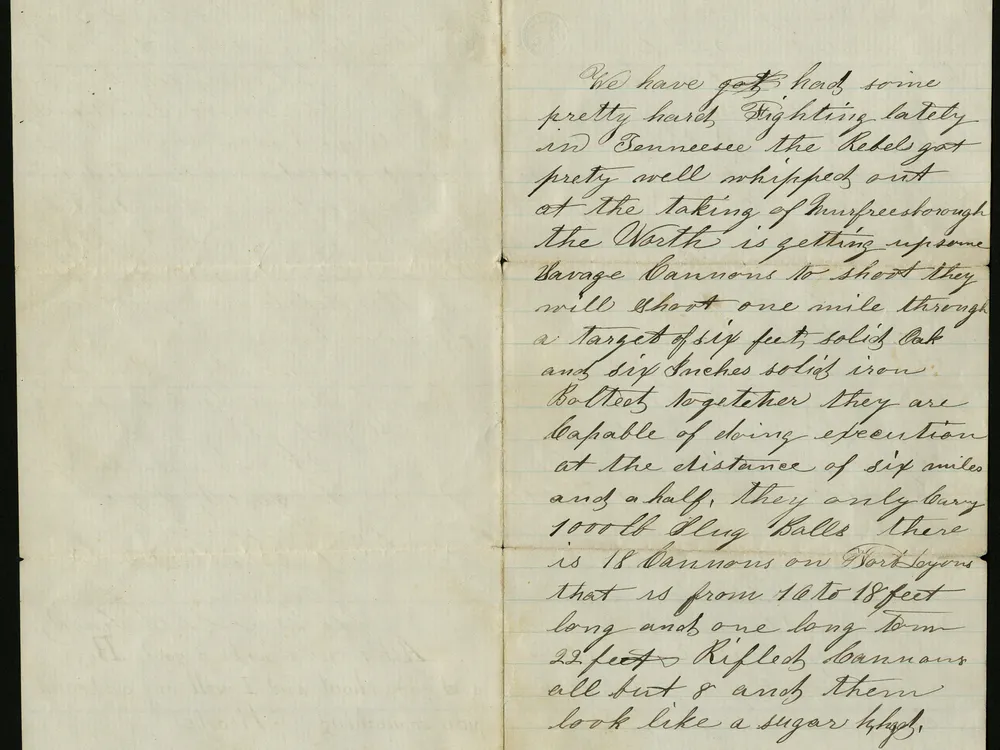 We have got had some
pretty hard Fighting lately
in Tenneesee the Rebels got
prety well whipped out
at the taking of Murfreesborough
the North is getting up some
Savage Cannons to shoot they
will Shoot one mile through
a target of six feet solid Oak
and six Inches solid iron
Bolted togetcher they are
Capable of doing execution
at the distance of six miles
and a half. they only Carry
1000 lb Slug Balls there
is 18 Cannons on Fort Lyons
that is from 16 to 18 feet
long and one long tom
22 feet Rifled Cannons
all but 8 and them
look like a sugar